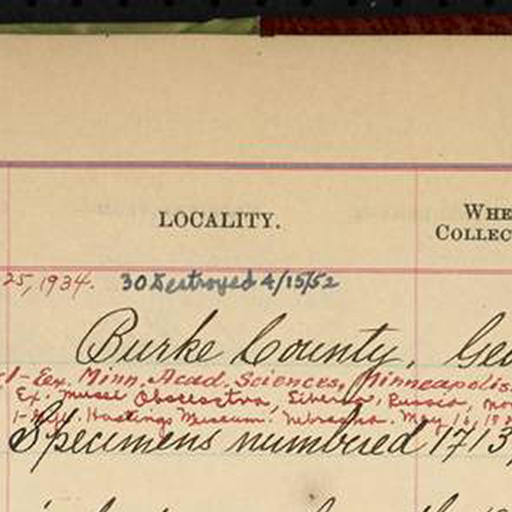 WHE
LOCALITY.
COLLEC
25, 1934. 30 Destroyed 4/15/52
Burke County, Geo
1-Ex. Minn. Acad. Sciences, Minneapolis
Ex. Siberia, Russia,
Hastings Museum. Nebraska. May 16,
Specimens numbered 1713,